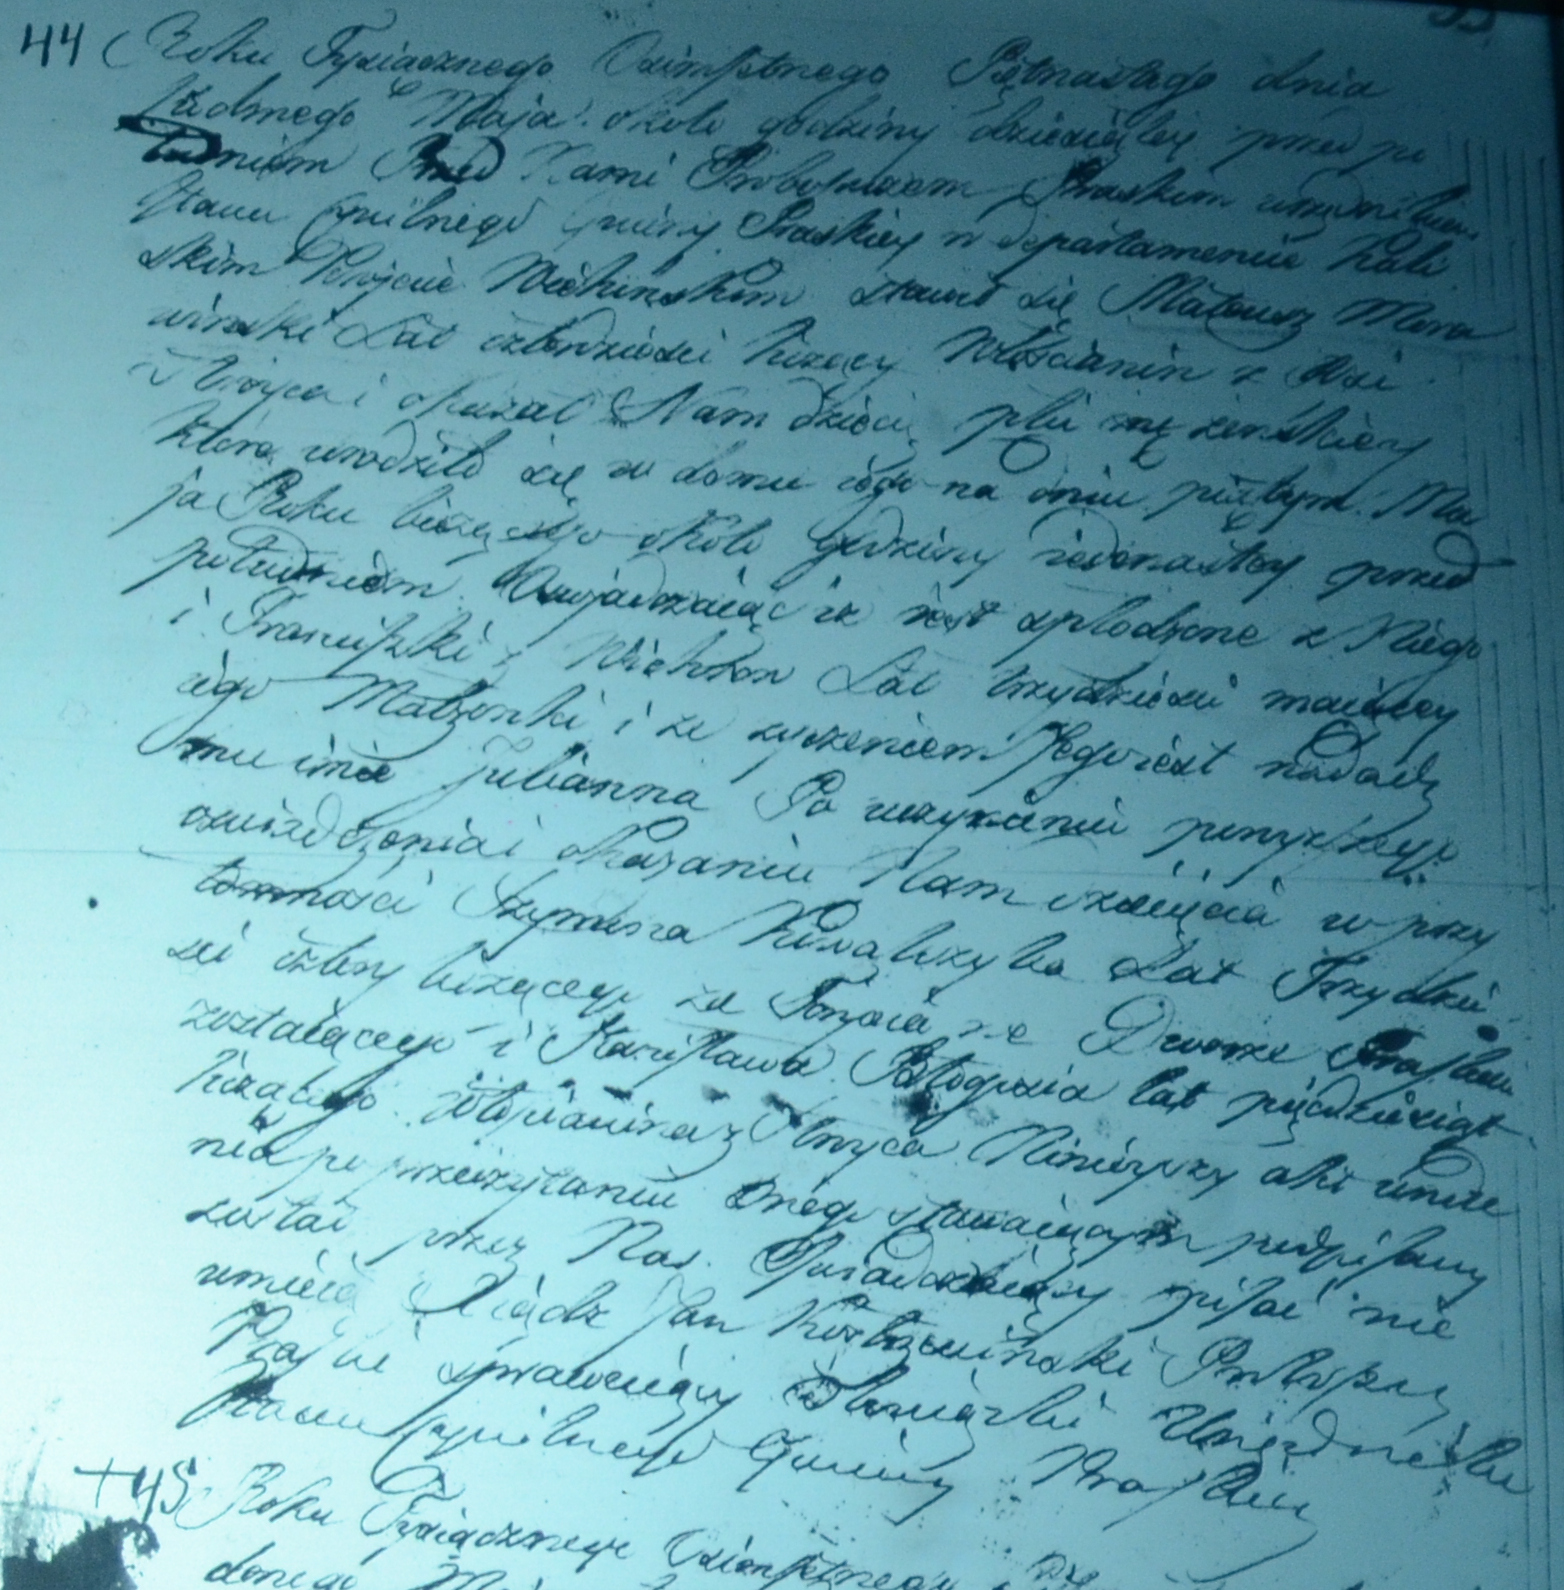 44 Roku Tysiącznego Osimsetnego Piętnastego dnia
siódmego Maja. około godziny dziesiątej przed po
łudniem Przed Nami Proboszczem Praskim urzędnikiem
Stanu Cywilnego Gminy Praskiey w departamencie Kali
skim Powiecie Wieluńskim stawił się Mateusz Mora
wirski Lat czterdzieści liczący Włościanin z Wsi
Stroyca i okazał Nam dziecię płci żeńskiey
które urodziło się w domu iego na dniu piątym Ma
ja Roku bieżącego około godziny iedenastey przed
południem. Oswjadczaiąc iż iest spłodzone z Niego
i Franciszki z Wichłow Lat trzydzieści maiącey
iego Małżonki i że życzeniem Jego iest nadadz
mu imie Julianna Po uczynieniu powyższego
oswiadczenia i okazaniu Nam dziecięcia w przy
tomności Szymona Kowalczyka Lat Trzydzie
sci cztery liczącego za Foryśia we Dworze Praskim
zostaiącego i Stanisława Błogosia lat pięćdziesiąt
liczącego włościanina z Stroyca Ninieyszy akt urodze
nia po przeczytaniu onego stawaiącym podpisany
został przez Nas. Swiadkowie pisać nie
umieią Xiądz Jan Proboszcz
Praski sprawuiący Obowiązki Urzędnika
Stanu Cywilnego Gminy Praskiey
+ 45 Roku Tysiącznego Osimsetnego